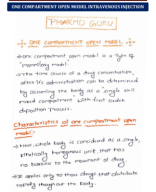 ONE COMPARTMENT OPEN MODEL INTRAVENOUS INJECTION
PHARMO GURU
ONE COMPARTMENT OPEN MODEL
one compartment open model is a type of
"mammillary model".
The time course of a drug concentration,
after its administration can be determined
by assuming the body as a single well
mixed compartment with first order
disposition process.
Characteristics of one compartment open
model:
Here, whole body is considered as a single,
kinetically homogeneous unit that has
no barriers to the movement of drug.
It applies only to those drugs that distribute
rapidly throughout the body.